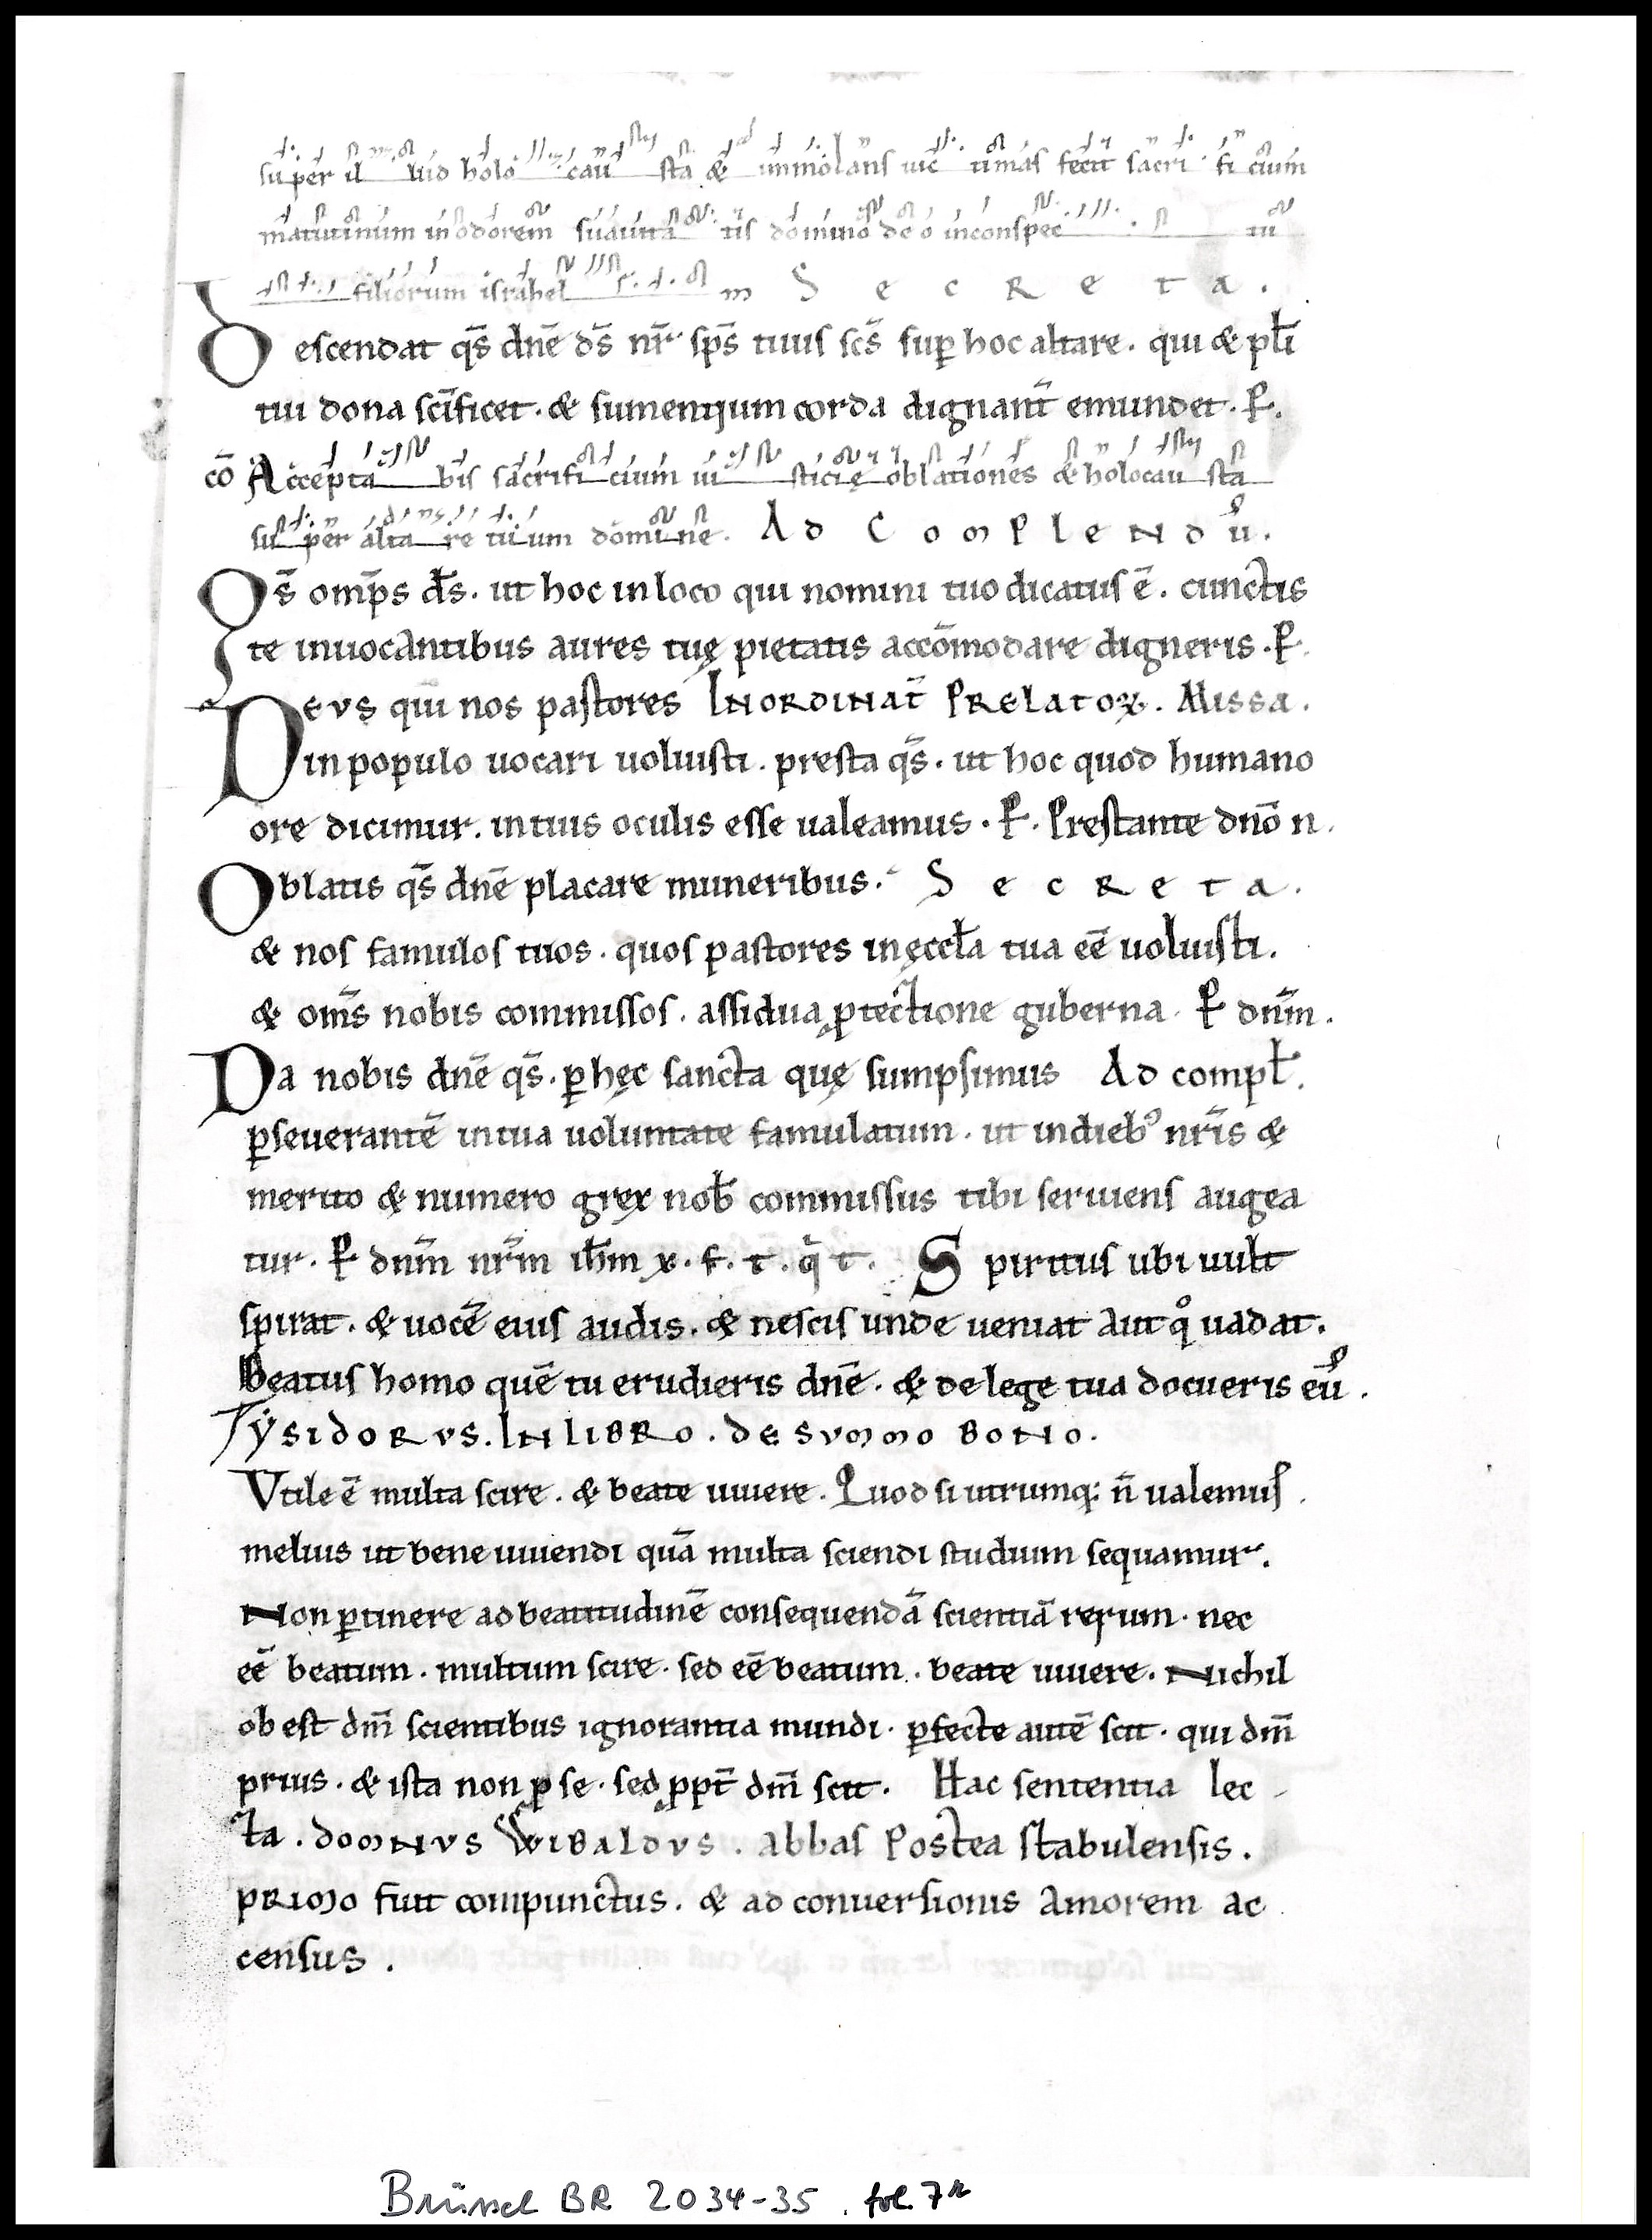 super il lud holo cau sta & immolans uic timas fecit sacri fi cium
matutinum in odorem suauita tis domino deo inconspec tu
filiorum israhel Secreta.
Descendat qs̄ dn̄e ds̄ nr̄ sp̄s tuus sc̄s suꝑ hoc altare. qui & pl̄i
tui dona sc̄ificet. & sumentium corda dignant̄ emundet. P̱.
cō Accepta bis sacrifi cium iu sticię oblationes & holocau sta
su per alta re tuum domi ne. Ad Complendū.
Qs̄ omp̄s ds̄. ut hoc in loco qui nomini tuo dicatus ē. cunctis
te inuocantibus aures tuę pietatis accōmodare digneris. P̱.
Deus qui nos pastores In ordinat̄ Prelatoꝝ. Missa.
in populo uocari uoluisti. presta qs̄. ut hoc quod humano
ore dicimur. in tuis oculis esse ualeamus. P̱. Prestante dn̄o n.
Oblatis qs̄ dn̄e placare muneribus. Secreta.
& nos famulos tuos. quos pastores in ęccl̄a tua eē uoluisti.
& om̄s nobis commissos. assidua ꝓtectione guberna. P̱ dn̄m.
Da nobis dn̄e qs̄. ꝑ hęc sancta quę sumpsimus Ad compl̄.
ꝑseuerantē in tua uoluntate famulatum. ut in dieb⁹ nr̄is &
merito & numero grex nob̄ commissus tibi seruiens augea
tur. P̱ dn̄m nr̄m ih̄m x. f. t. q̄ t. Spiritus ubi uult
spirat. & uocē eius audis. & nescis unde ueniat aut qͦ uadat.
Beatus homo quē tu erudieris dn̄e. & de lege tua docueris eū.
Ysidorus. In libro. de summo bono.
Vtile ē multa scire. & beate uiuere. Quod si utrumq; n̄ ualemus.
melius ut bene uiuendi quā multa sciendi studium sequamur.
Non ꝑtinere ad beatitudinē consequendā scientiā rerum. nec
eē beatum. multum scire. sed eē beatum. beate uiuere. Nichil
obest dm̄ scientibus ignorantia mundi. ꝑfecte autē scit. qui dm̄
prius. & ista non ꝑ se. sed ꝓpt̄ dm̄ scit. Hac sententia lec
ta. domnus Wibaldus. abbas postea stabulensis.
primo fuit compunctus. & ad conuersionis amorem ac
census.
Brüssel BR 2034-35. fol. 7r